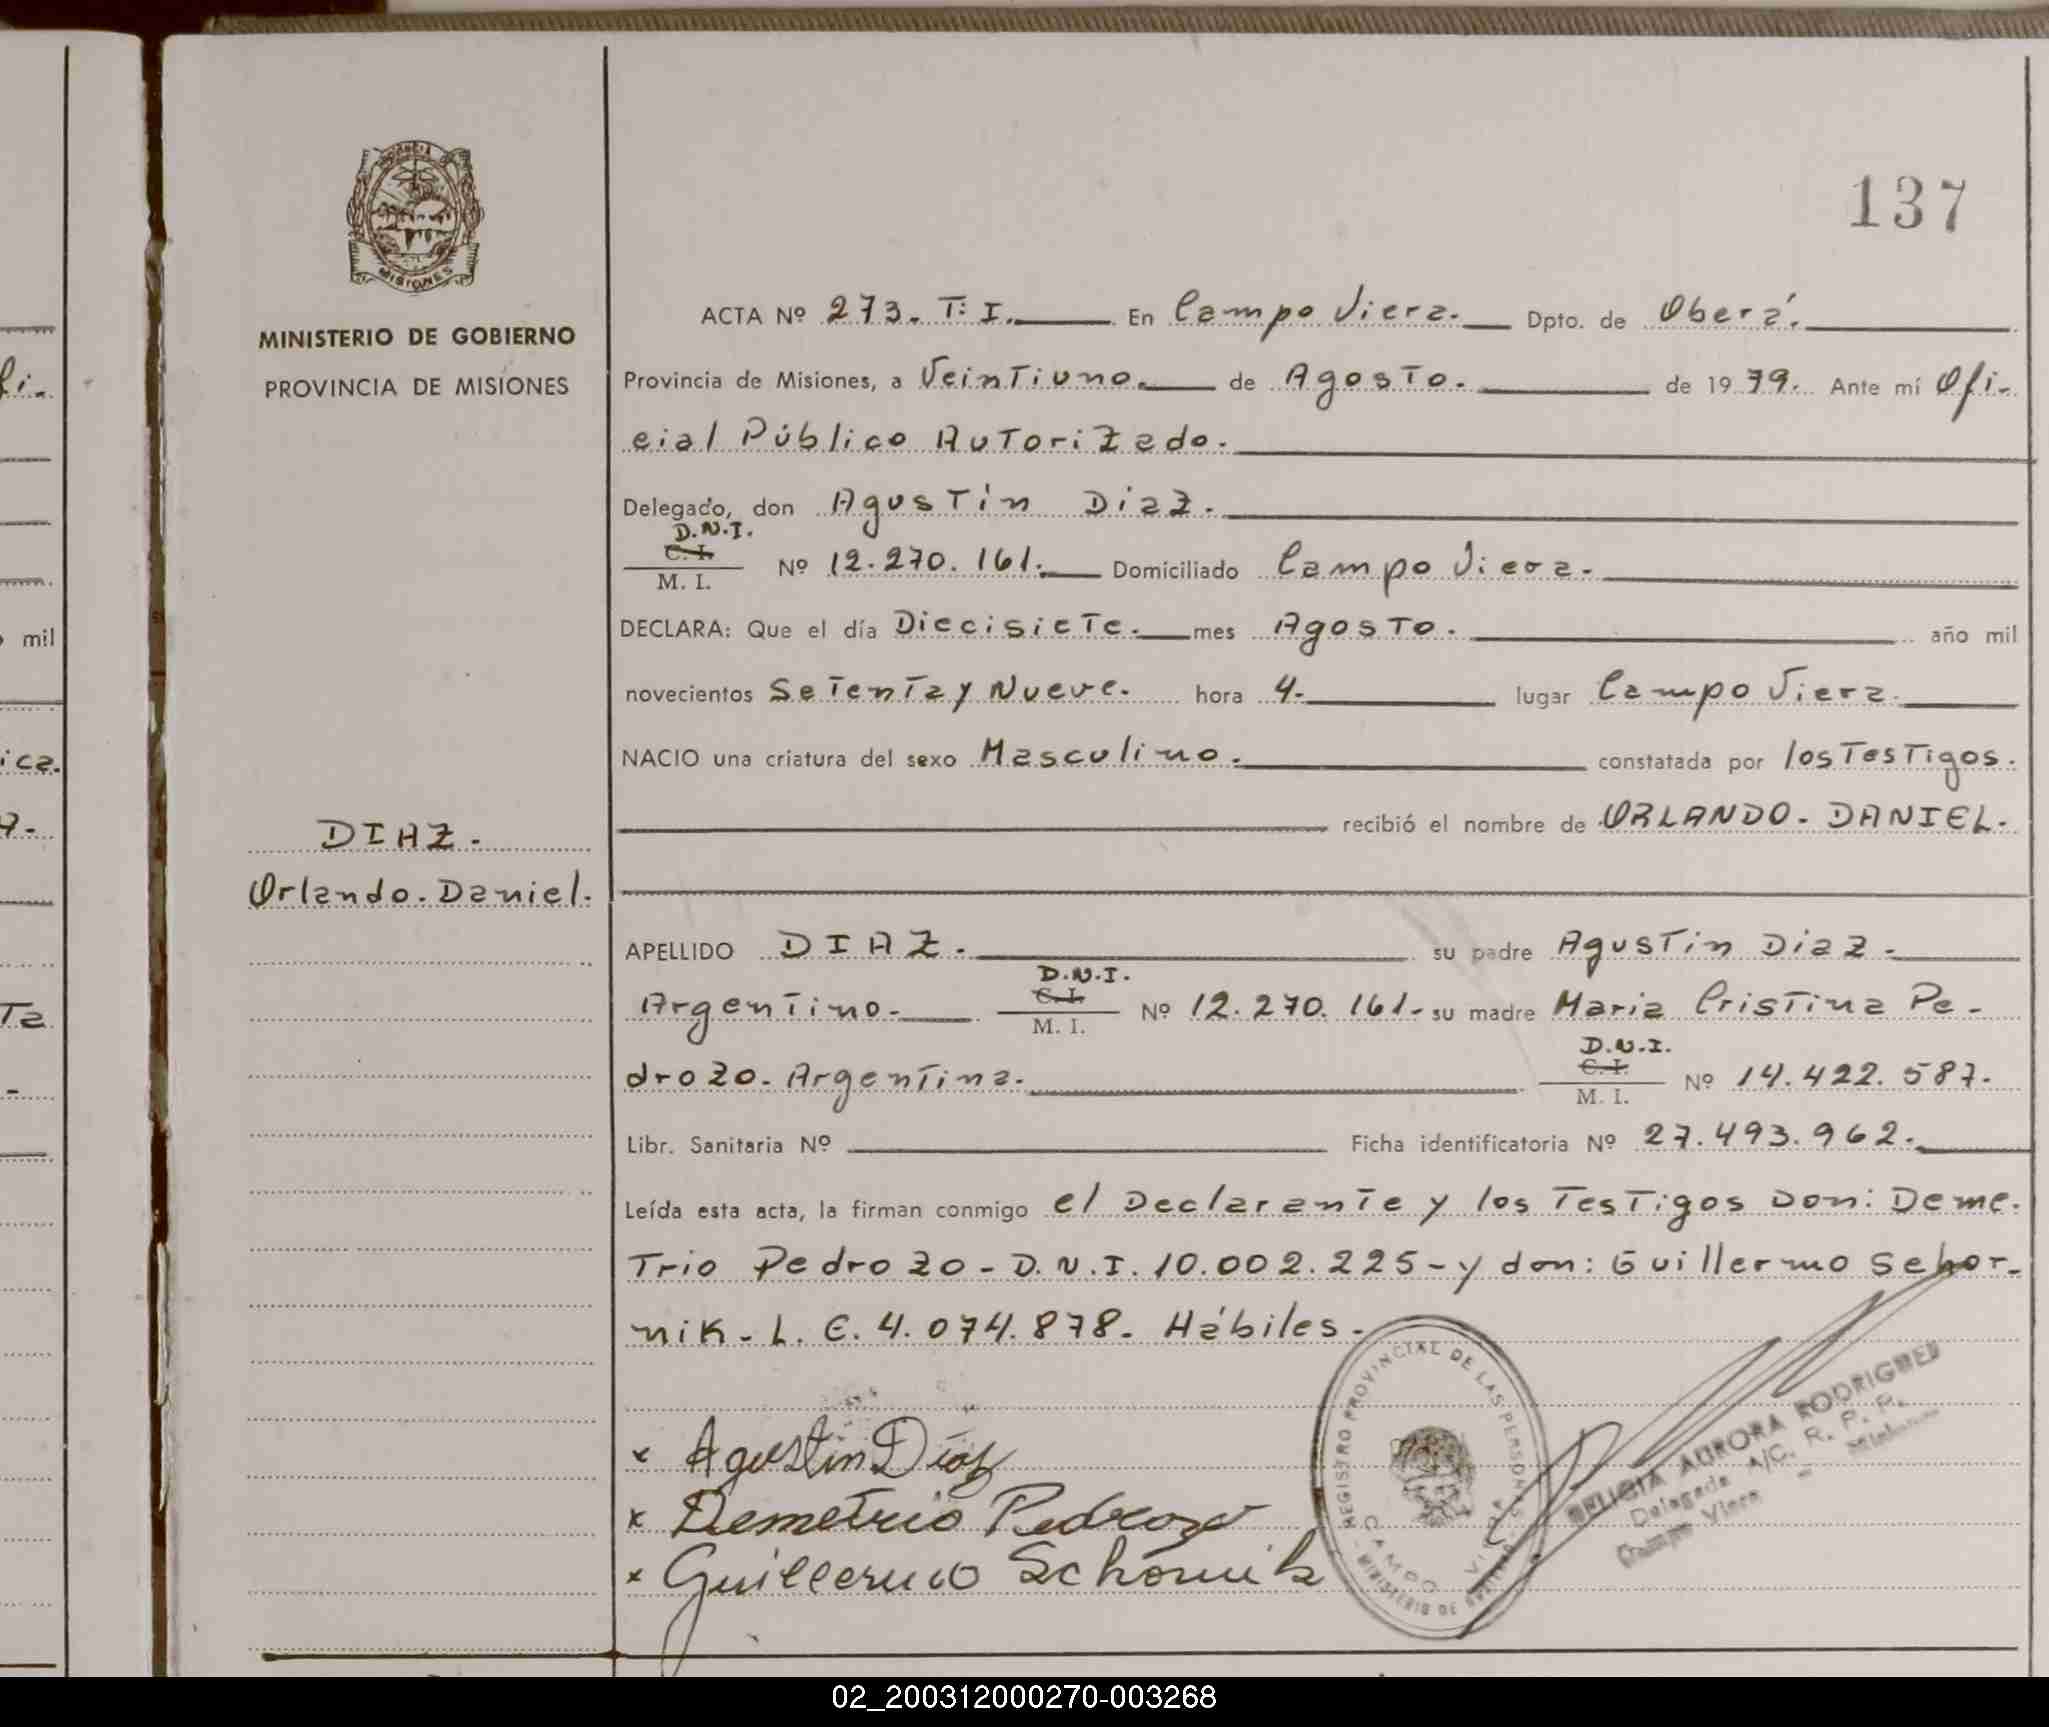 137
PROVINCIA DE
MISIONES
MINISTERIO DE GOBIERNO
PROVINCIA DE MISIONES
ACTA Nº 273. T: I. En Campo Viera. Dpto. de Oberá.
Provincia de Misiones, a Veintiuno. de Agosto. de 1979. Ante mí Ofi-
cial Público Autorizado.
Delegado, don Agustín Diaz.
D.N.I.
C. I.
M. I. Nº 12.270.161. Domiciliado Campo Viera.
DECLARA: Que el día Diecisiete. mes Agosto. año mil
novecientos Setenta y Nueve. hora 4. lugar Campo Viera
NACIO una criatura del sexo Masculino. constatada por los Testigos.
recibió el nombre de ORLANDO. DANIEL.
DIAZ.
Orlando. Daniel.
APELLIDO DIAZ. su padre Agustin Diaz.
D.N.I.
Argentino. C. I.
M. I. Nº 12.270.161. su madre Maria Cristina Pe-
D.N.I.
drozo. Argentina. C. I.
M. I. Nº 14.422.587.
Libr. Sanitaria Nº Ficha identificatoria Nº 27.493.962.
Leída esta acta, la firman conmigo el Declarante y los Testigos Don: Deme.
Trio Pedrozo - D.N.I. 10.002.225 - y don: Guillermo Schor-
nik - L. E. 4.074.878. Hábiles.
x Agustin Díaz
x Demetrio Pedrozo
x Guillermo Schornik
REGISTRO PROVINCIAL DE LAS PERSONAS
CAMPO VIERA
MINISTERIO DE
AURORA RODRIGUEZ
Delegada A/C. R. P. P.
Campo Viera - Misiones
fi-
mil
ica.
Ta
02_200312000270-003268